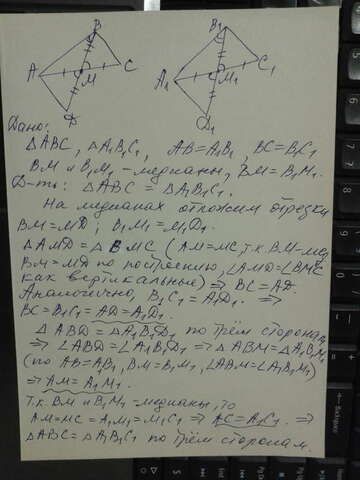 B B₁
A M C A₁ M₁ C₁
D D₁
Дано:
ΔABC, ΔA₁B₁C₁, AB=A₁B₁, BC=B₁C₁
BM и B₁M₁ - медианы, BM=B₁M₁.
Д-ть: ΔABC = ΔA₁B₁C₁.
На медианах отложим отрезки
BM=MD; B₁M₁=M₁D₁.
ΔAMD=ΔBMC (AM=MC, т.к. BM-мед.
BM=MD по построению, ∠AMD=∠BMC
как вертикальные) ⇒ BC=AD.
Аналогично, B₁C₁=A₁D₁. ⇒
BC=B₁C₁=AD=A₁D₁.
ΔABD=ΔA₁B₁D₁ по трём сторонам,
⇒ ∠ABD=∠A₁B₁D₁ ⇒ ΔABM=ΔA₁B₁M₁
(по AB=A₁B₁, BM=B₁M₁, ∠ABM=∠A₁B₁M₁)
⇒ AM=A₁M₁.
Т.к. BM и B₁M₁ - медианы, то
AM=MC=A₁M₁=M₁C₁ ⇒ AC=A₁C₁. ⇒
ΔABC=ΔA₁B₁C₁ по трём сторонам.